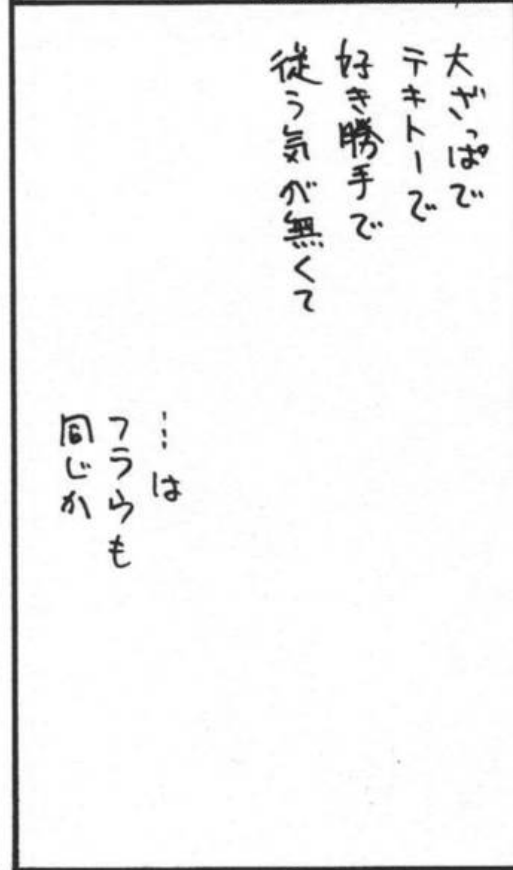 大ざっぱで
テキトーで
好き勝手で
従う気が無くて
…は
フラウも
同じか